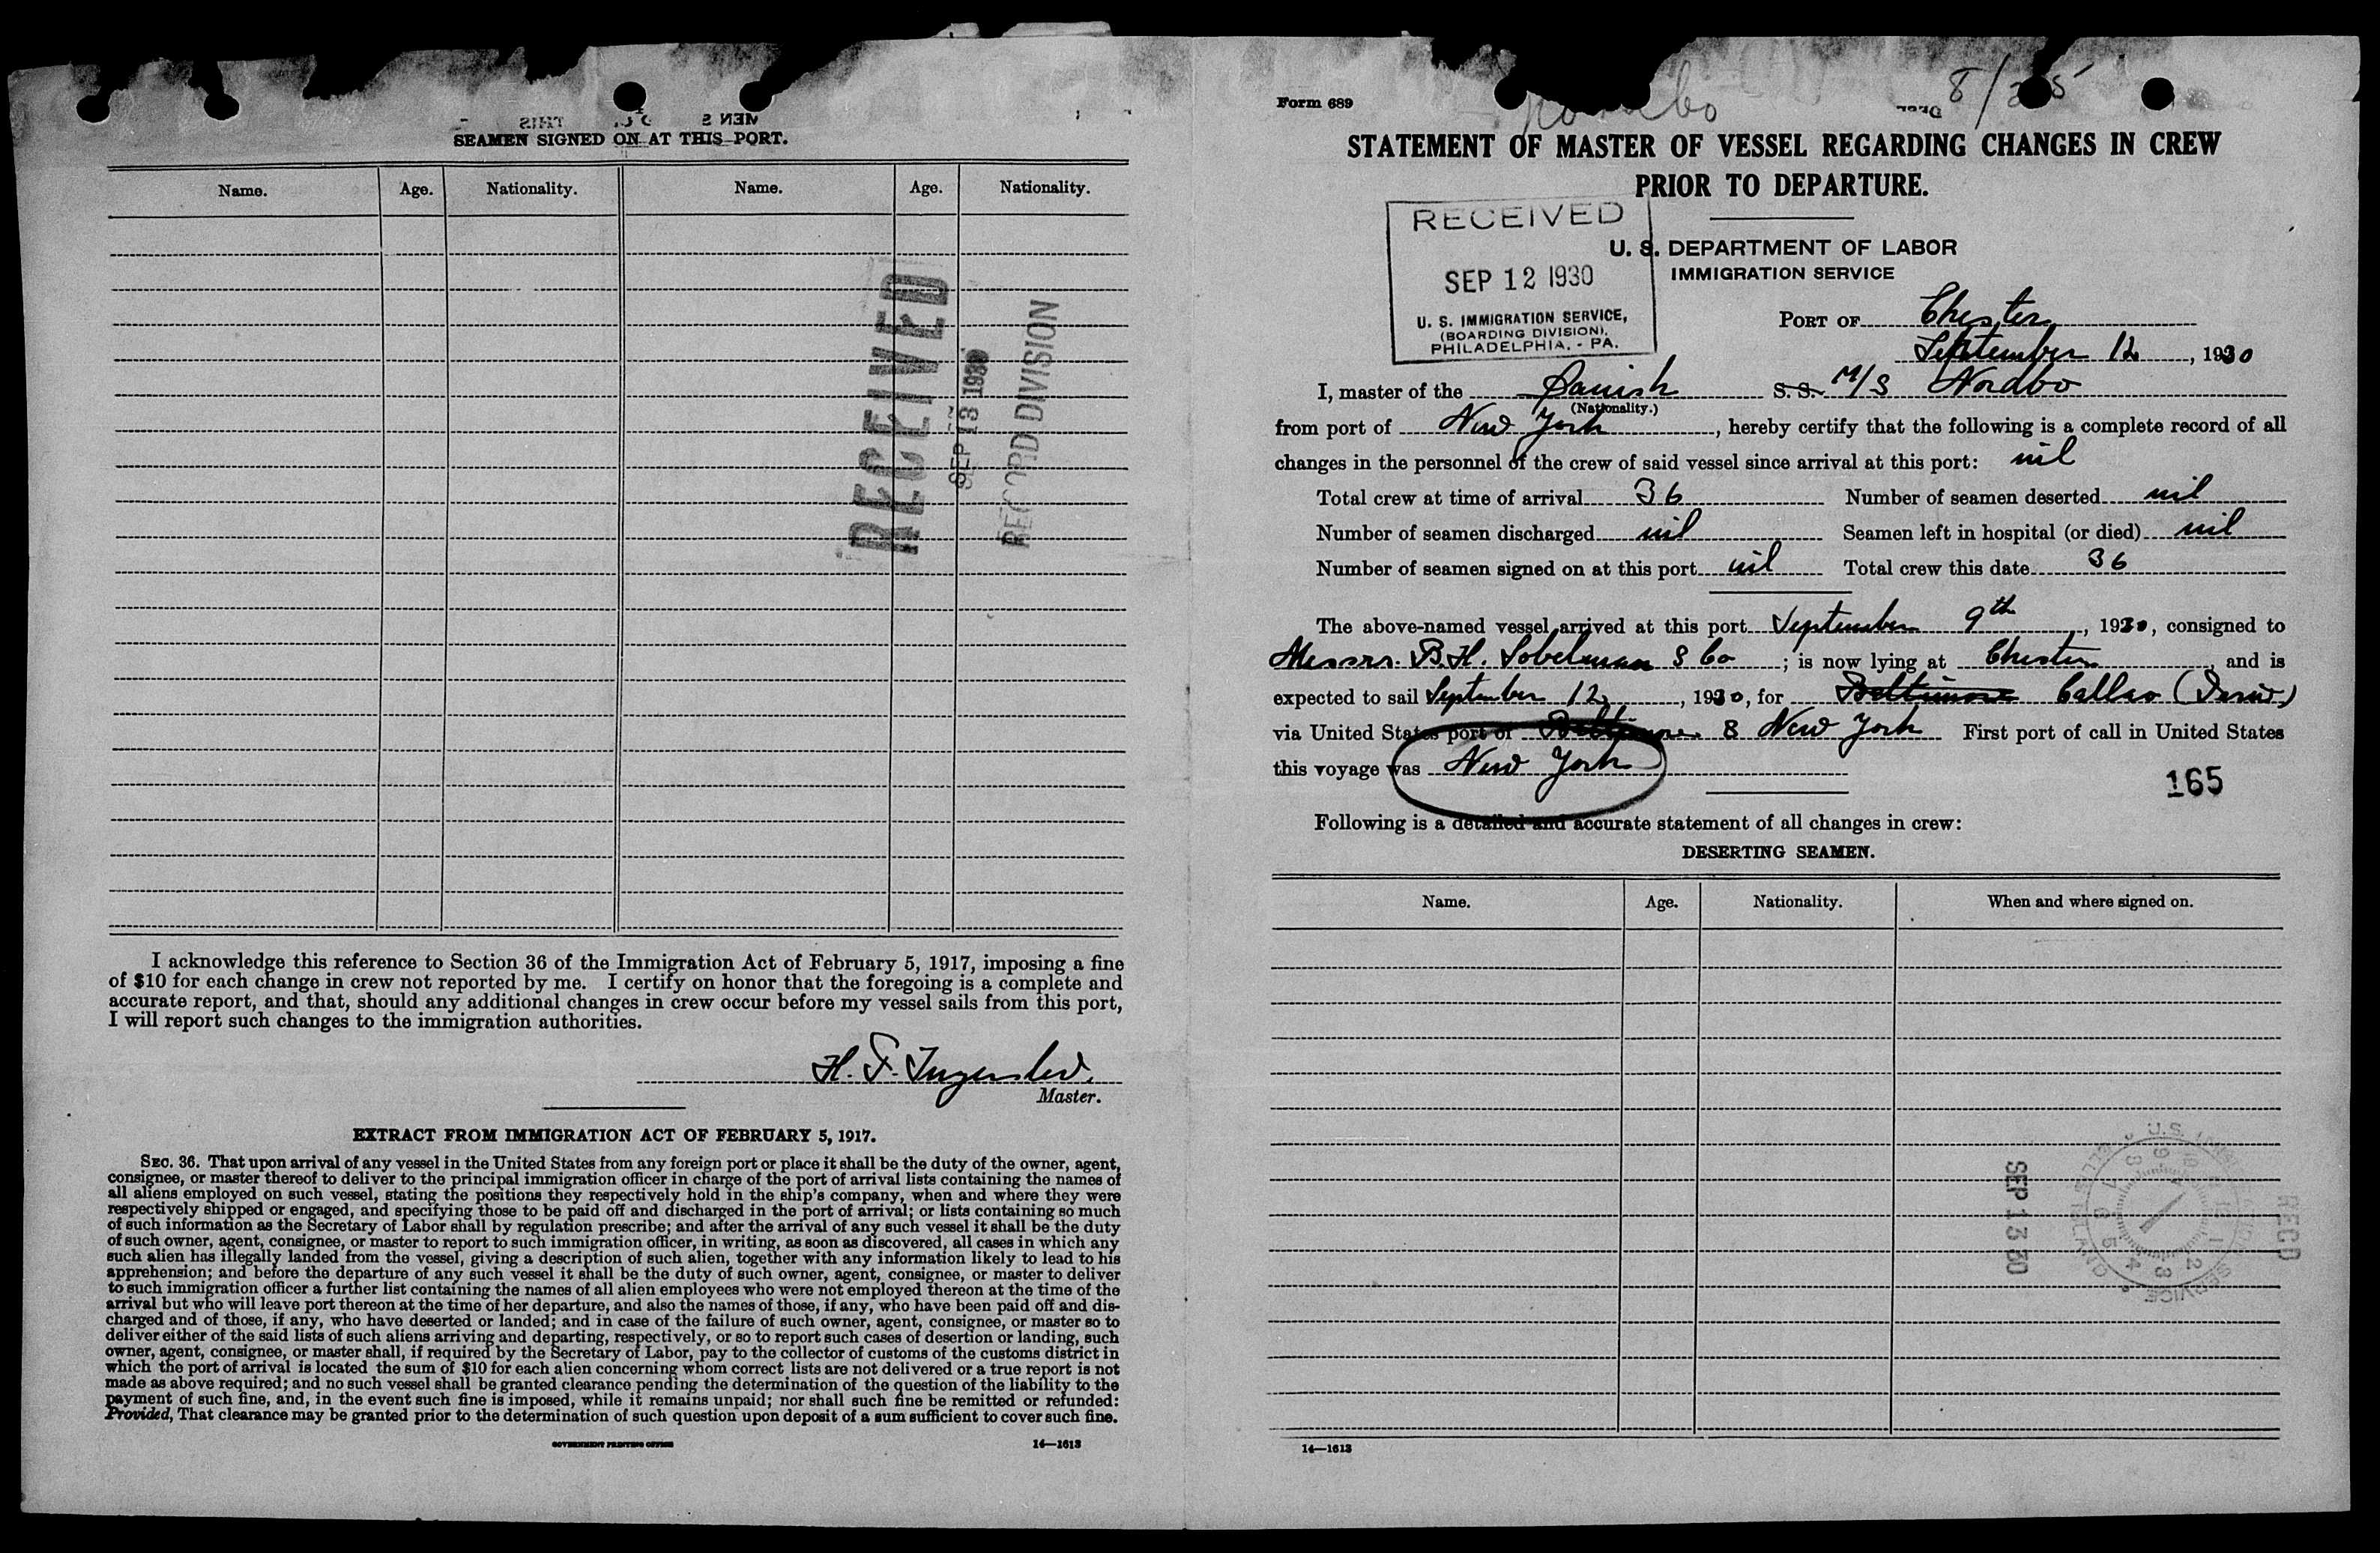 SEAMEN SIGNED ON AT THIS PORT.
Name. Age. Nationality. Name. Age. Nationality.
RECEIVED
SEP 13 1930
RECORD DIVISION
I acknowledge this reference to Section 36 of the Immigration Act of February 5, 1917, imposing a fine
of $10 for each change in crew not reported by me. I certify on honor that the foregoing is a complete and
accurate report, and that, should any additional changes in crew occur before my vessel sails from this port,
I will report such changes to the immigration authorities.
H. F. Ingerslev.
Master.
EXTRACT FROM IMMIGRATION ACT OF FEBRUARY 5, 1917.
SEC. 36. That upon arrival of any vessel in the United States from any foreign port or place it shall be the duty of the owner, agent,
consignee, or master thereof to deliver to the principal immigration officer in charge of the port of arrival lists containing the names of
all aliens employed on such vessel, stating the positions they respectively hold in the ship's company, when and where they were
respectively shipped or engaged, and specifying those to be paid off and discharged in the port of arrival; or lists containing so much
of such information as the Secretary of Labor shall by regulation prescribe; and after the arrival of any such vessel it shall be the duty
of such owner, agent, consignee, or master to report to such immigration officer, in writing, as soon as discovered, all cases in which any
such alien has illegally landed from the vessel, giving a description of such alien, together with any information likely to lead to his
apprehension; and before the departure of any such vessel it shall be the duty of such owner, agent, consignee, or master to deliver
to such immigration officer a further list containing the names of all alien employees who were not employed thereon at the time of the
arrival but who will leave port thereon at the time of her departure, and also the names of those, if any, who have been paid off and dis-
charged and of those, if any, who have deserted or landed; and in case of the failure of such owner, agent, consignee, or master so to
deliver either of the said lists of such aliens arriving and departing, respectively, or so to report such cases of desertion or landing, such
owner, agent, consignee, or master shall, if required by the Secretary of Labor, pay to the collector of customs of the customs district in
which the port of arrival is located the sum of $10 for each alien concerning whom correct lists are not delivered or a true report is not
made as above required; and no such vessel shall be granted clearance pending the determination of the question of the liability to the
payment of such fine, and, in the event such fine is imposed, while it remains unpaid; nor shall such fine be remitted or refunded:
Provided, That clearance may be granted prior to the determination of such question upon deposit of a sum sufficient to cover such fine.
GOVERNMENT PRINTING OFFICE 14—1613
Form 689
STATEMENT OF MASTER OF VESSEL REGARDING CHANGES IN CREW
PRIOR TO DEPARTURE.
RECEIVED
SEP 12 1930
U. S. IMMIGRATION SERVICE,
(BOARDING DIVISION),
PHILADELPHIA, - PA.
U. S. DEPARTMENT OF LABOR
IMMIGRATION SERVICE
PORT OF Chester
September 12, 1930
I, master of the Danish S. S. M/S Nordbo
(Nationality.)
from port of New York, hereby certify that the following is a complete record of all
changes in the personnel of the crew of said vessel since arrival at this port: nil
Total crew at time of arrival 36 Number of seamen deserted nil
Number of seamen discharged nil Seamen left in hospital (or died) nil
Number of seamen signed on at this port nil Total crew this date 36
The above-named vessel arrived at this port September 9th, 1930, consigned to
Messrs. B. H. Sobelman & Co; is now lying at Chester, and is
expected to sail September 12, 1930, for Baltimore Callao
via United States port of Baltimore & New York First port of call in United States
this voyage was New York
165
Following is a detailed and accurate statement of all changes in crew:
DESERTING SEAMEN.
Name. Age. Nationality. When and where signed on.
SEP 13 30
RECD
14—1613